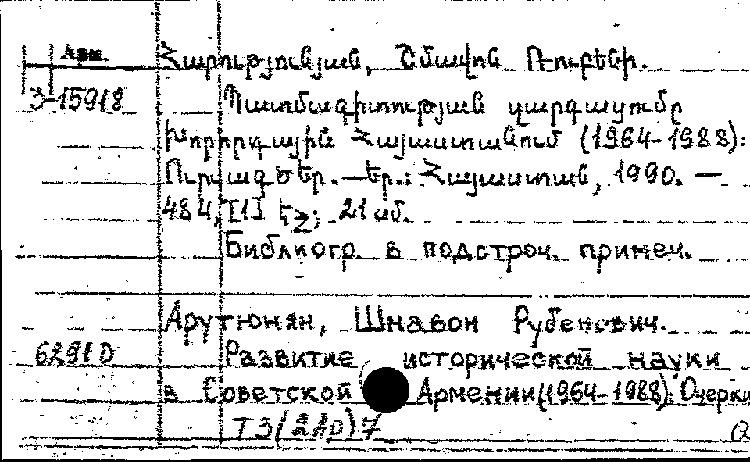 Арм. Հարությունյան, Շմավոն Ռուբենի.
3-15918 Պատմագիտության զարգացումը
խորհրդային Հայաստանում (1964-1988):
Ուրվագծեր. — Եր.: Հայաստան, 1990. —
484, [1] էջ; 21 սմ.
Библиогр. в подстроч. примеч.
Арутюнян, Шмавон Рубенович.
6291D Развитие исторической науки
в Советской Армении (1964-1988): Очерки
Т3(2Ар)7